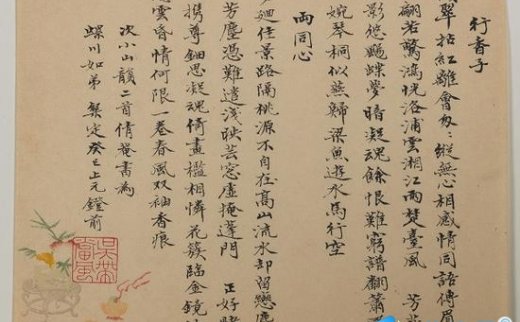 行香子
翠拈紅離會匆匆縱無心相感情同語傳眉
翩若驚鴻恍洛浦雲湘江雨楚臺風 芳
影悠颺蝶夢暗凝魂餘恨難窮譜翻蕭
婉琴桐似燕歸梁魚遊水馬行空
兩同心
迴佳景路隔桃源不自在高山流水却留戀
芳塵憑難遣淺映芸窓虛掩蓬門 正好
携尊細思凝魂倚畫檻相憐花簇臨金鏡
雲昏情何限一卷春風双袖香痕
次小山韻二首倩菴書為
螺川如弟 定癸巳上元鐙前